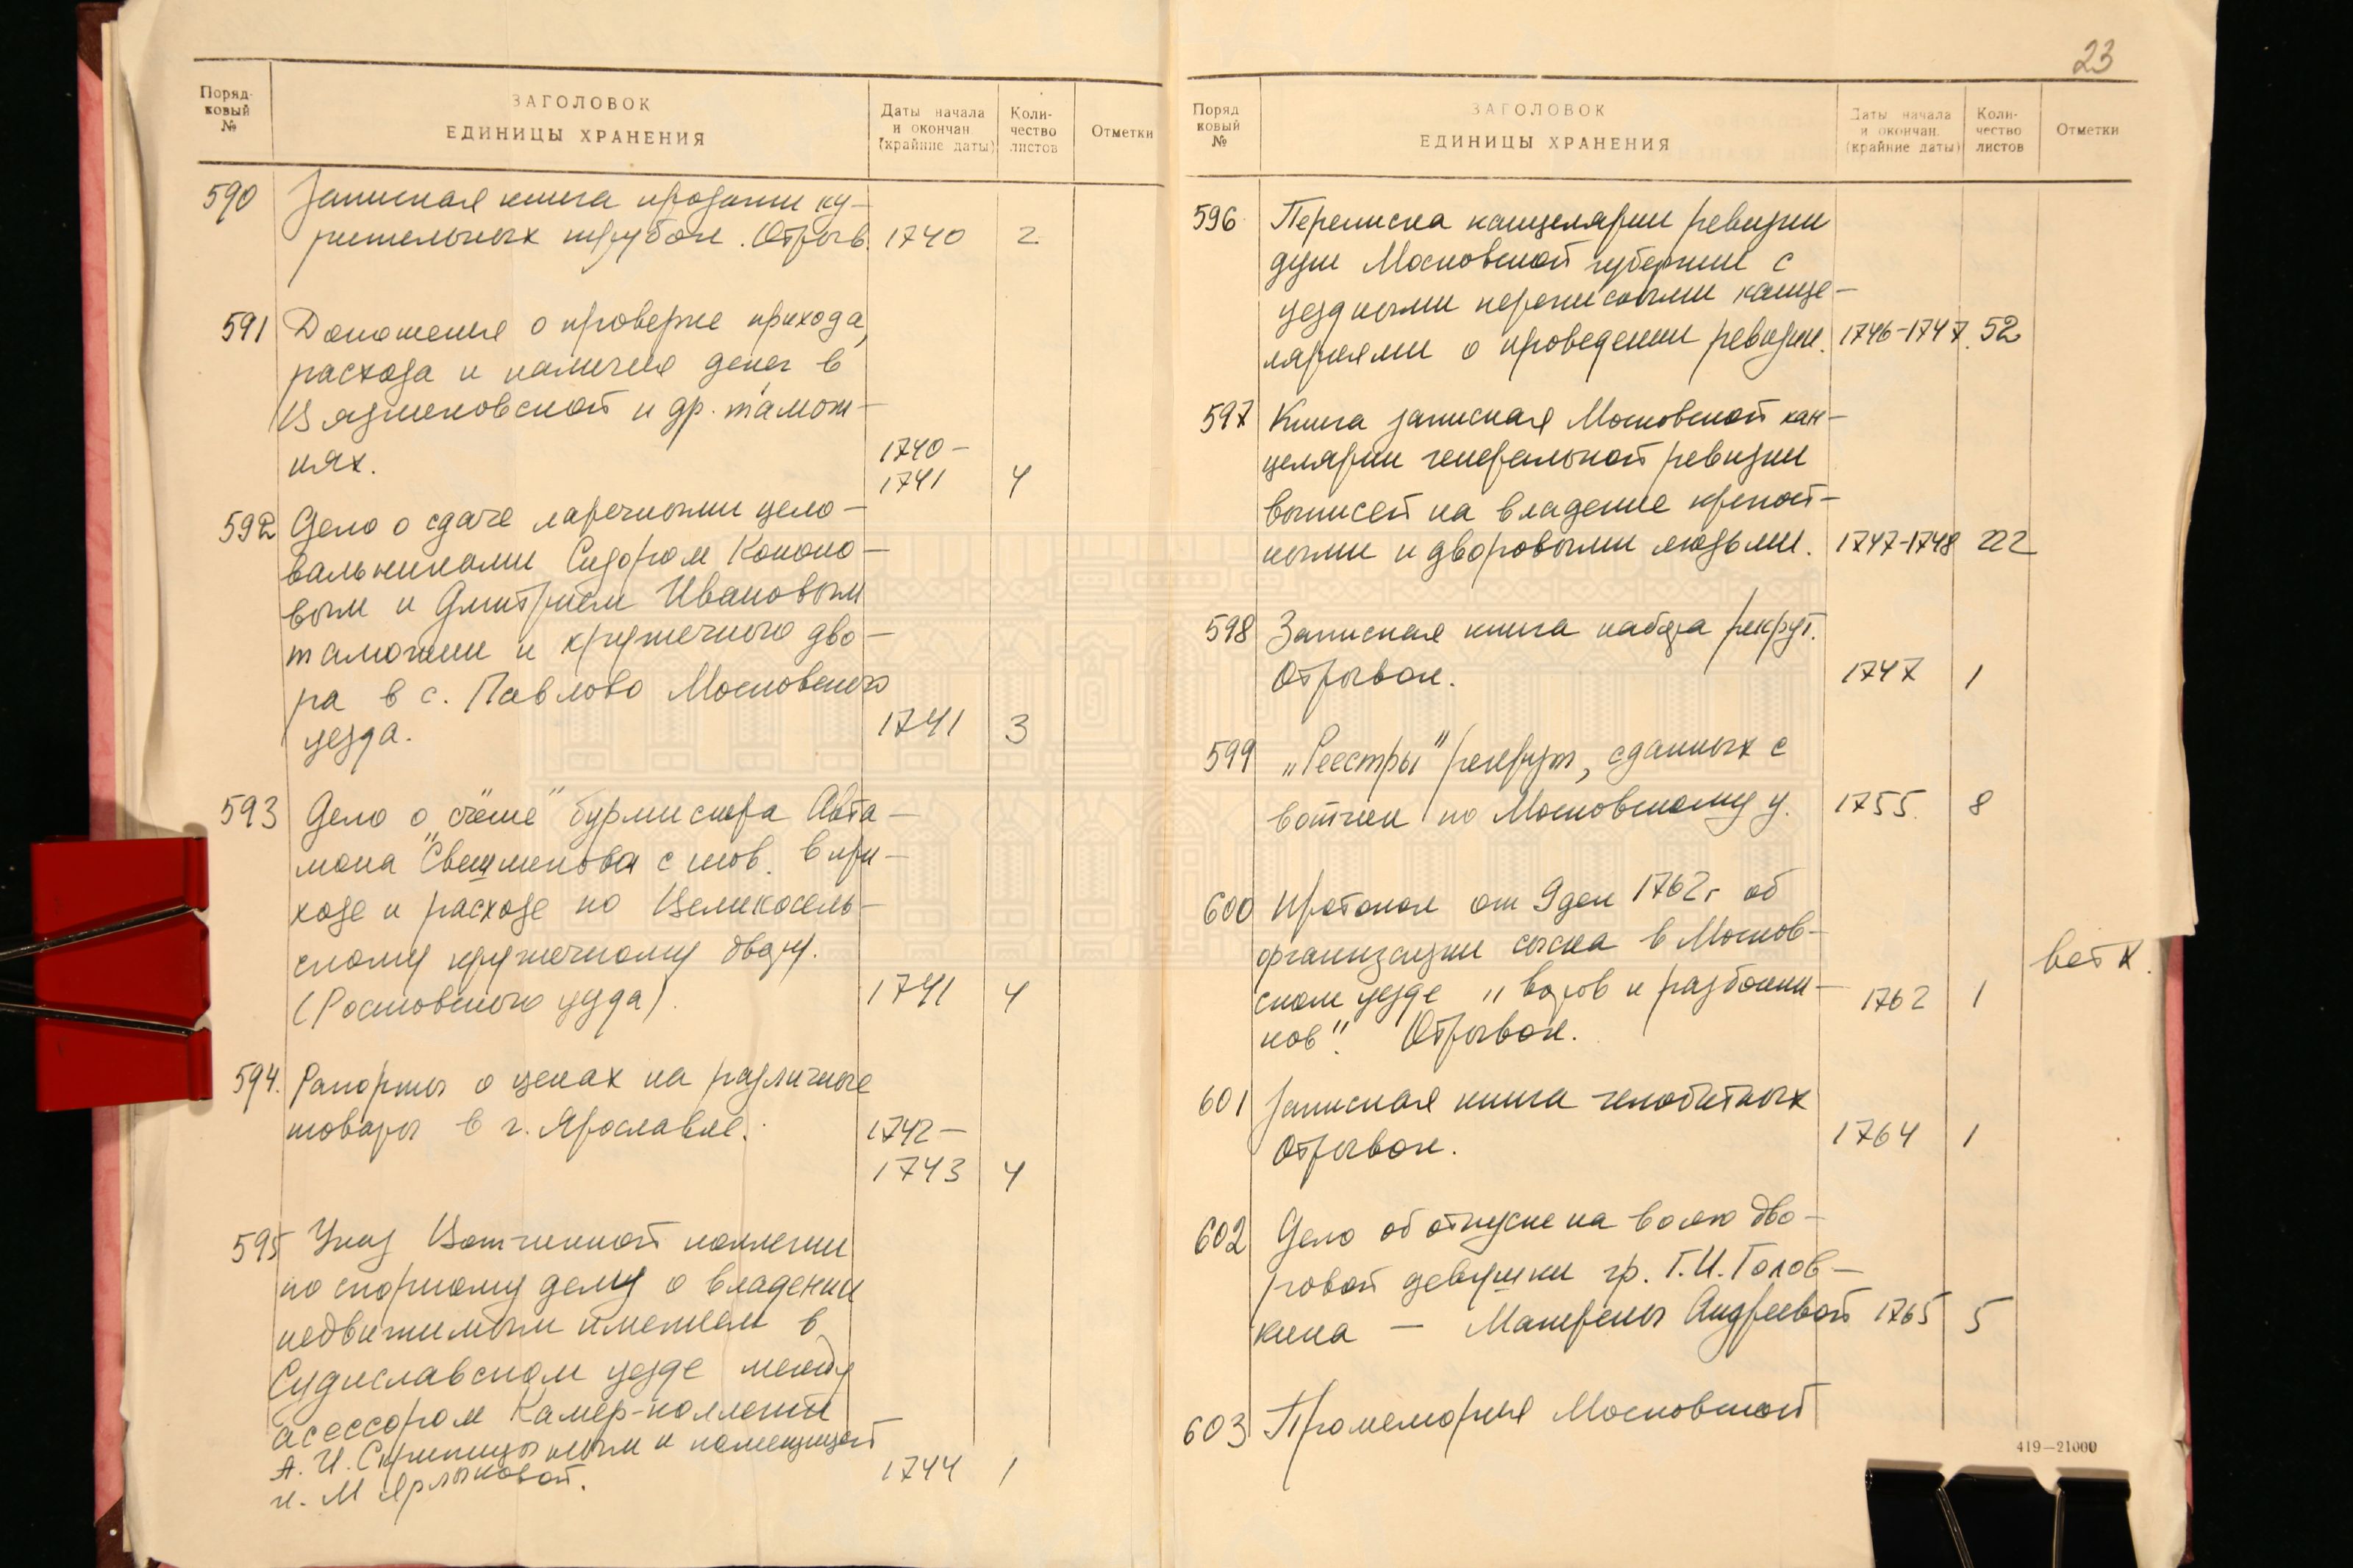 Поряд-
ковый
№
ЗАГОЛОВОК
ЕДИНИЦЫ ХРАНЕНИЯ
Даты начала
и окончан
(крайние даты)
Коли-
чество
листов
Отметки
590 Записная книга продажи ку-
рительных трубок. Отрыв. 1740 2
591 Доношения о проверке прихода,
расхода и наличия денег в
Вязниковской и др. тамож-
нях.
1740-
1741 4
592 Дело о сдаче ларечными цело-
вальниками Сидором Кононо-
вым и Дмитрием Ивановым
таможни и кружечного дво-
ра в с. Павлово Московского
уезда. 1741 3
593 Дело о "счёте" бурмистра Авта-
мона Свешникова с тов. в при-
ходе и расходе по Великосель-
скому кружечному двору.
(Ростовского уезда). 1741 4
594. Рапорты о ценах на различные
товары в г. Ярославле. 1742-
1743 4
595 Указ Вотчинной коллегии
по спорному делу о владении
недвижимым имением в
Судиславском уезде между
асессором Камер-коллегии
А. И. Скрипицыным и помещицей
М Ярлыковой. 1744 1
23
Поряд
ковый
№
ЗАГОЛОВОК
ЕДИНИЦЫ ХРАНЕНИЯ
Даты начала
и окончан.
(крайние даты)
Коли-
чество
листов
Отметки
596 Переписка канцелярии ревизии
душ Московской губернии с
уездными переписными канце-
ляриями о проведении ревизии. 1746-1747. 52
597 Книга записная Московской кан-
целярии генеральной ревизии
выписей на владение крепост-
ными и дворовыми людьми. 1747-1748 222
598 Записная книга набора рекрут.
Отрывок. 1747 1
599 „Реестры" рекрут, сданных с
вотчин по Московскому у. 1755. 8
600 Протокол от 9 дек 1762 г об
организации сыска в Москов-
ском уезде „воров и разбойни-
ков". Отрывок. 1762 1
ветх.
601 Записная книга челобитных
Отрывок. 1764 1
602 Дело об отпуске на волю дво-
ровой девушки гр. Г.И. Голов-
кина — Матрены Андреевой 1765 5
603 Промемория Московской
419—21000